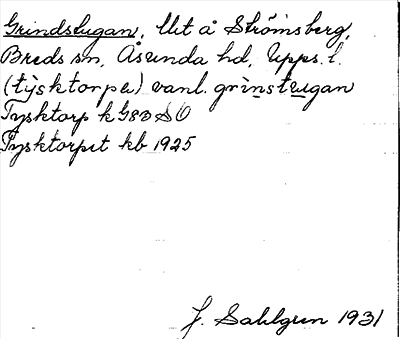 Grindstugan, llet å Strömsberg,
Breds sn, Åsunda hd, Upps. l.
(tỳsktorpet) vanl. grinstugan
Tysktorp k G83 SO
Tysktorpet kb 1925
J. Sahlgren 1931